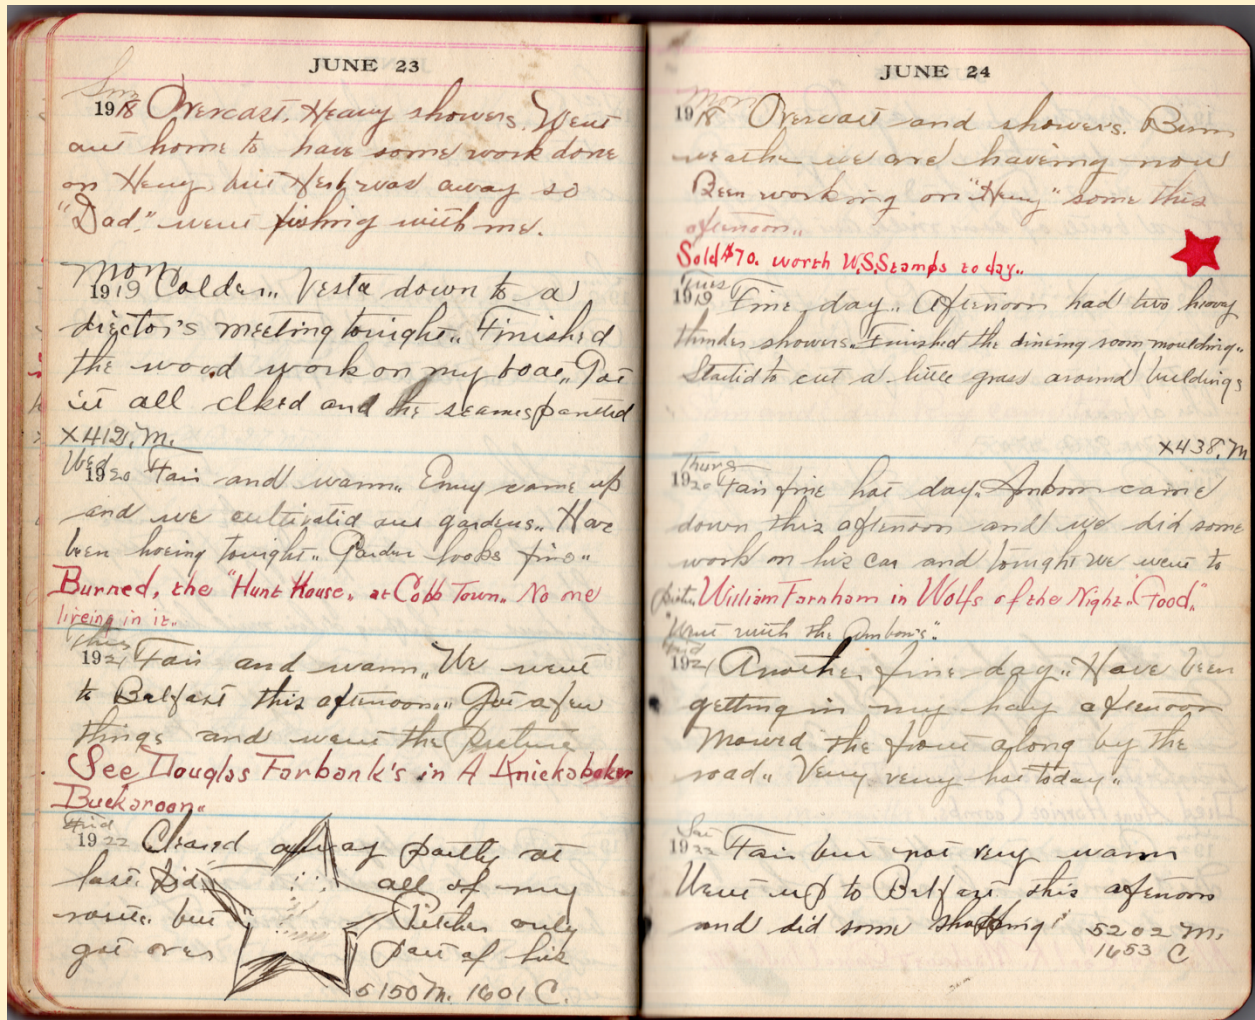 JUNE 23
Sun
1918 Overcast. Heavy showers. Went
out home to have some work done
on Henry but Herb was away so
"Dad." went fishing with me.
Mon
1919 Colder.. Vesta down to a
director's meeting tonight.. Finished
the wood work on my boat.. Got
it all clked and the seames painted
X412, M.
Wed
1920 Fair and warm.. came up
and we cultivatid our gardens.. Have
been hoeing tonight.. Garden looks fine..
Burned, the "Hunt House, at Cobb Town. No one
liveing in it..
Thurs
1921 Fair and warm.. We went
to Belfast this afternoon.. Got a few
things and went the picture
See Douglas Farbank's in A Knickabaker
Buckaroon..
Frid
1922 Cleared away partly at
last. Did all of my
route. but Pitcher only
got over part of his
5150 M. 1601 C.
JUNE 24
Mon
1918 Overcast and showers. Bum
weather we are haveing now
Been working on "Henry" some this
afternoon..
Sold $70. worth W.S.Stamps today..
Tues
1919 Fine day.. Afternoon had two heavy
thunder showers. Finished the dineing room moulding..
Startid to cut a little grass around buildings
X438, M
Thurs
1920 Fair fine hot day. came
down this afternoon and we did some
work on his car and tonight we went to
pictur William Farnham in Wolfs of the Night. "Good."
"Went with the
Frid
1921 Another fine day.. Have been
getting in my hay afternoon
Mowed the front along by the
road.. Very, very hot today..
Sat
1922 Fair but not very warm
Went up to Belfast this afternoon
and did some shopping
5202 M.
1653 C